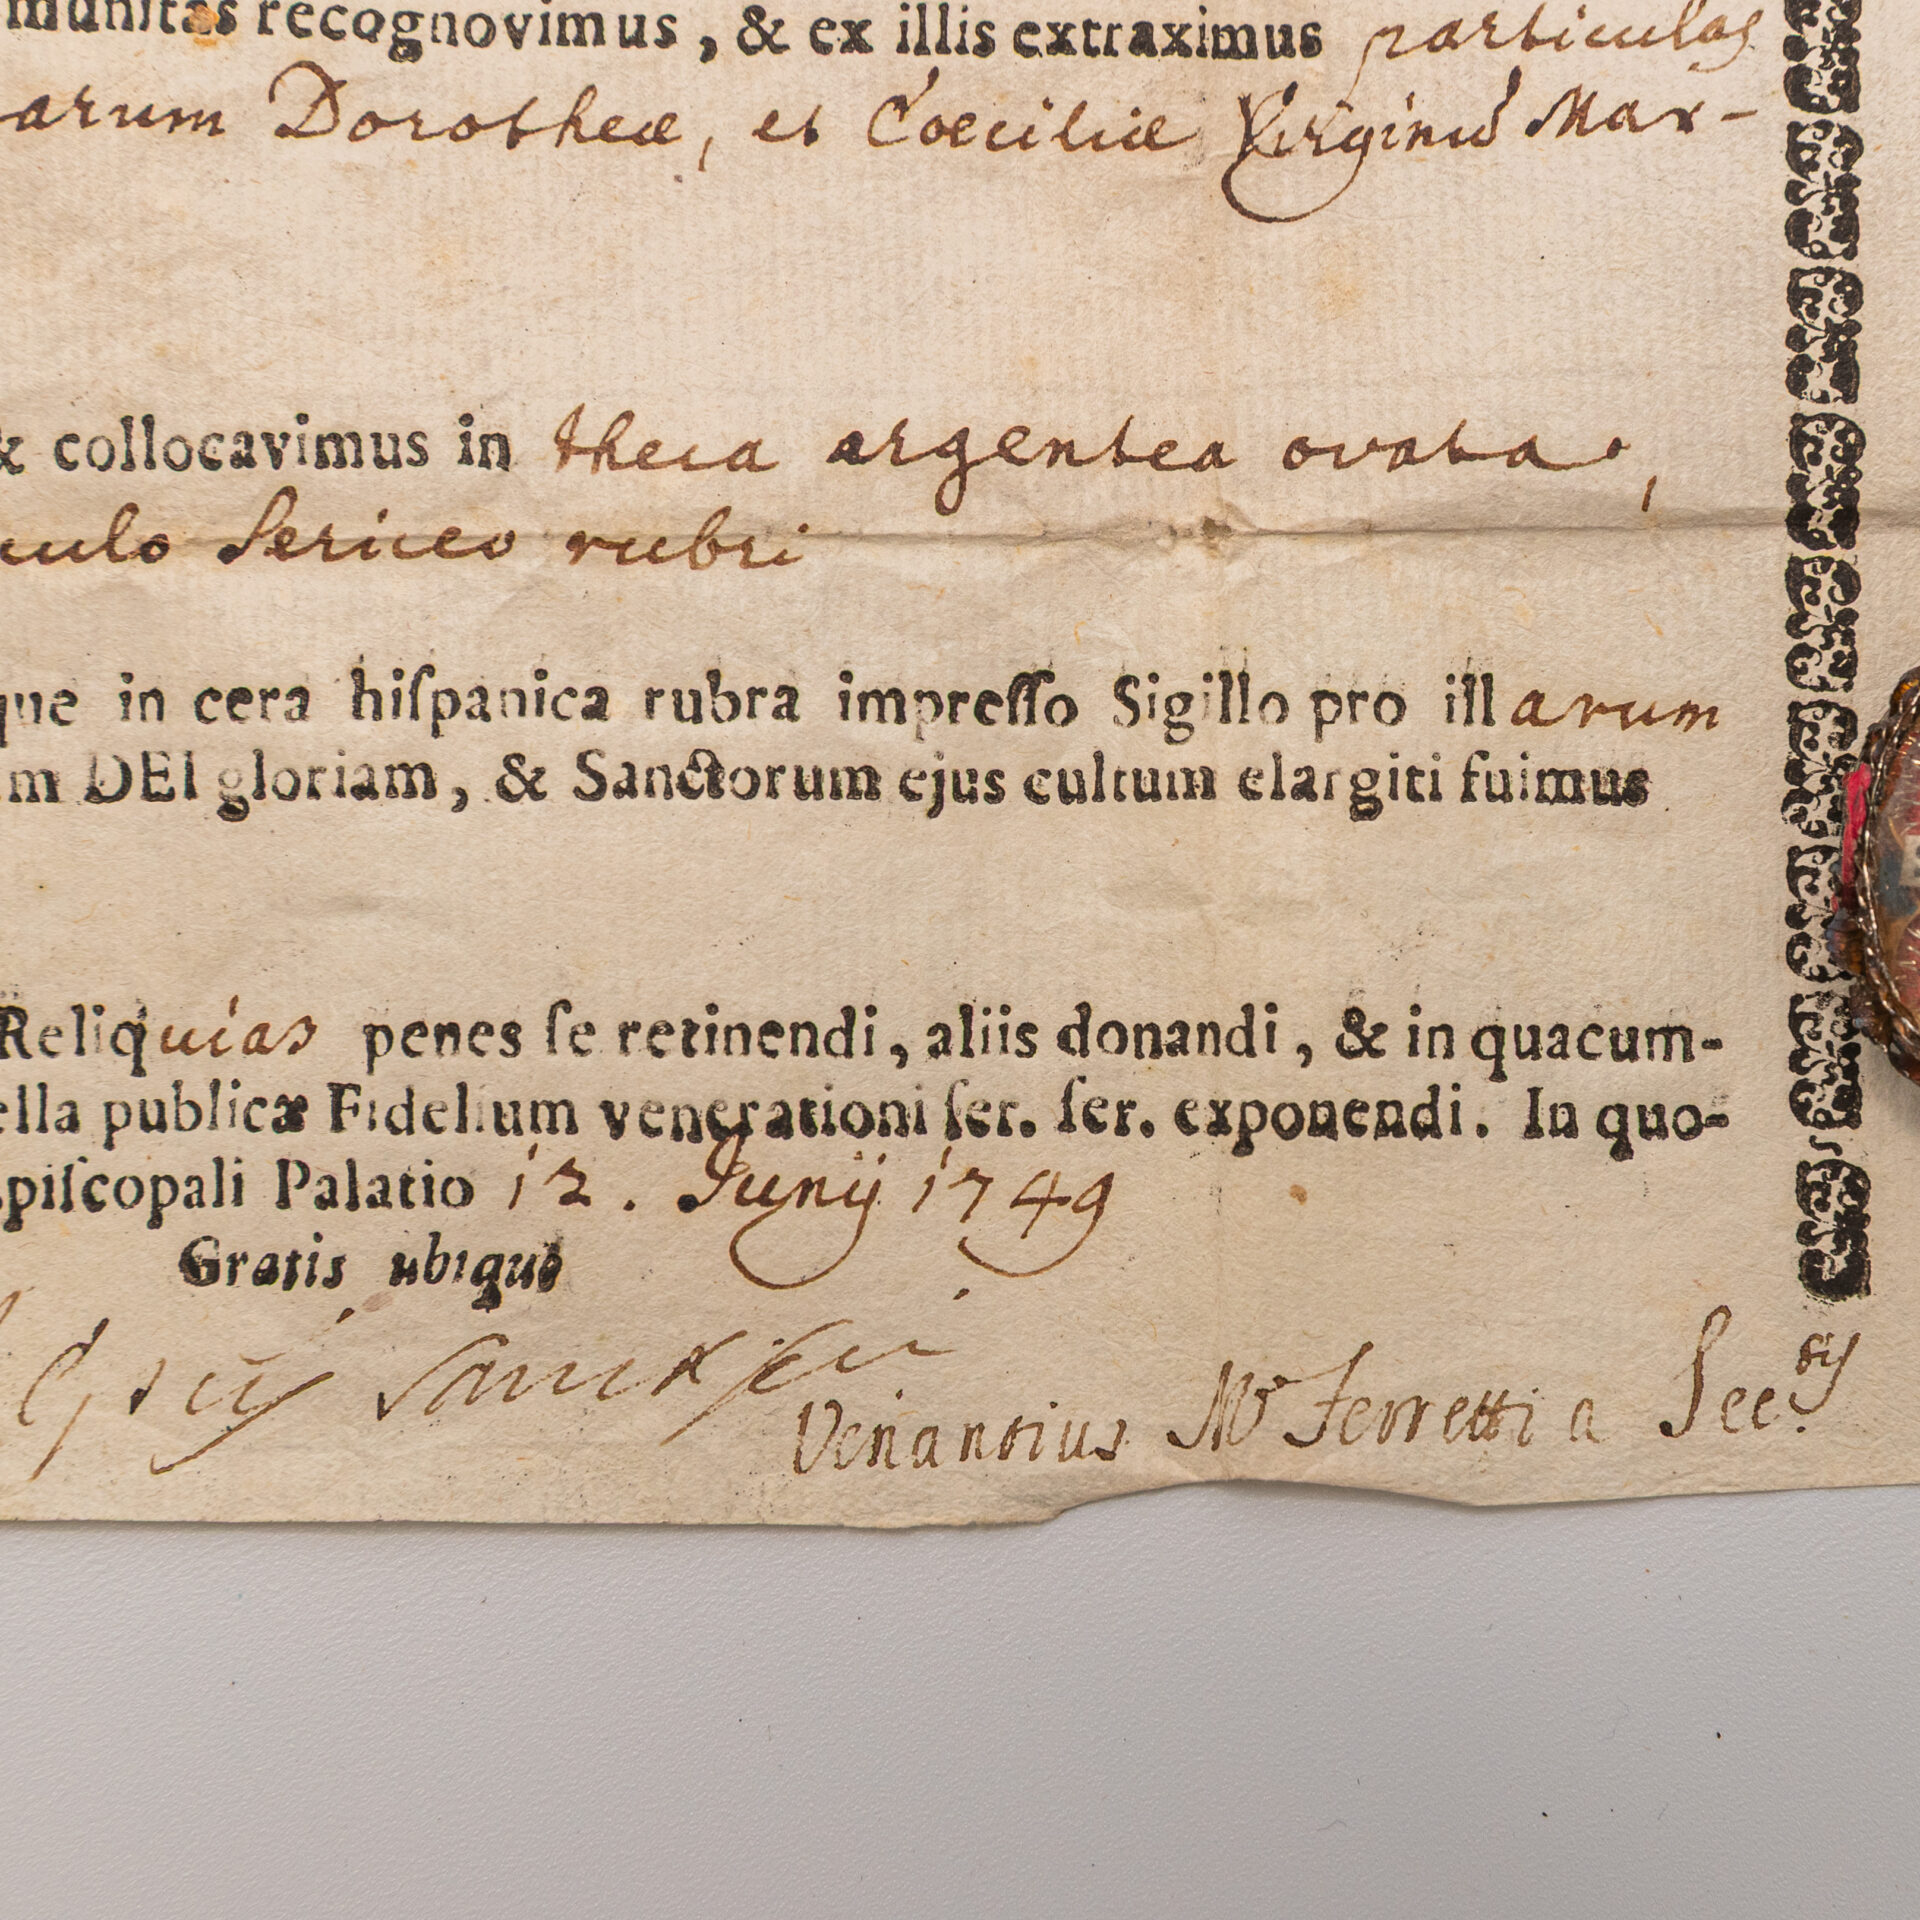 munitas recognovimus, & ex illis extraximus particulas
arum Dorotheæ, et Cœciliæ Virginũ Mar-
& collocavimus in theca argentea ovata,
culo Sericeo rubri
que in cera hiſpanica rubra impreſſo Sigillo pro illarum
m DEI gloriam, & Sanctorum ejus cultum elargiti fuimus
Reliquias penes ſe retinendi, aliis donandi, & in quacum-
ella publicæ Fidelium venerationi ſer. ſer. exponendi. In quo-
piſcopali Palatio 12. Junij 1749
Gratis ubique
Venantius Ferretti a Sec.ry